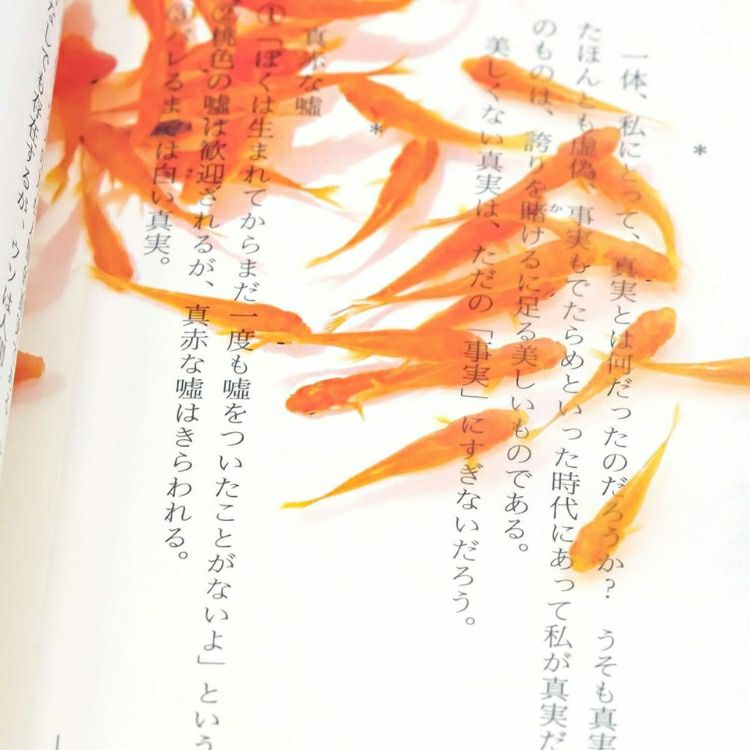 *
一体、私にとって、真実とは何だったのだろうか? うそも真実
たほんとも虚偽、事実もでたらめといった時代にあって私が真実だ
のものは、誇りを賭けるに足る美しいものである。
美しくない真実は、ただの「事実」にすぎないだろう。
*
真赤な嘘
①「ぼくは生まれてからまだ一度も嘘をついたことがないよ」という
②桃色の嘘は歓迎されるが、真赤な嘘はきらわれる。
③バレるまでは白い真実。
しても存在するが、ウソは人間